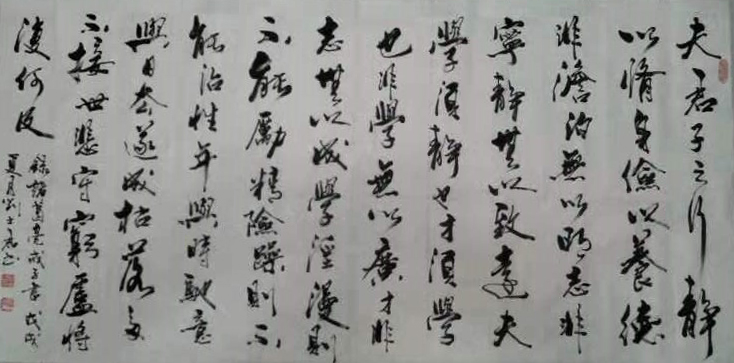 夫君子之行靜
以脩身儉以養德
非澹泊無以明志非
寧靜無以致遠夫
學須靜也才須學
也非學無以廣才非
志無以成學淫漫則
不能勵精險躁則不
能治性年與時馳意
與日去遂成枯落多
不接世悲守窮廬將
復何及
錄諸葛亮戒子書戊戌
夏月